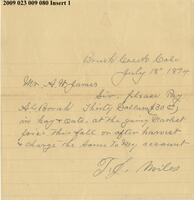 2009 023 009 080 Insert 1
Brush Creek Colo
July 18th 1894
Mr. A. W. James
Sir. please Pay
Al Borah Thirty Dollars ($30.00)
in hay & oats, at the going Market
price this fall on after harvest
& charge the same to My account
T. J. Miles